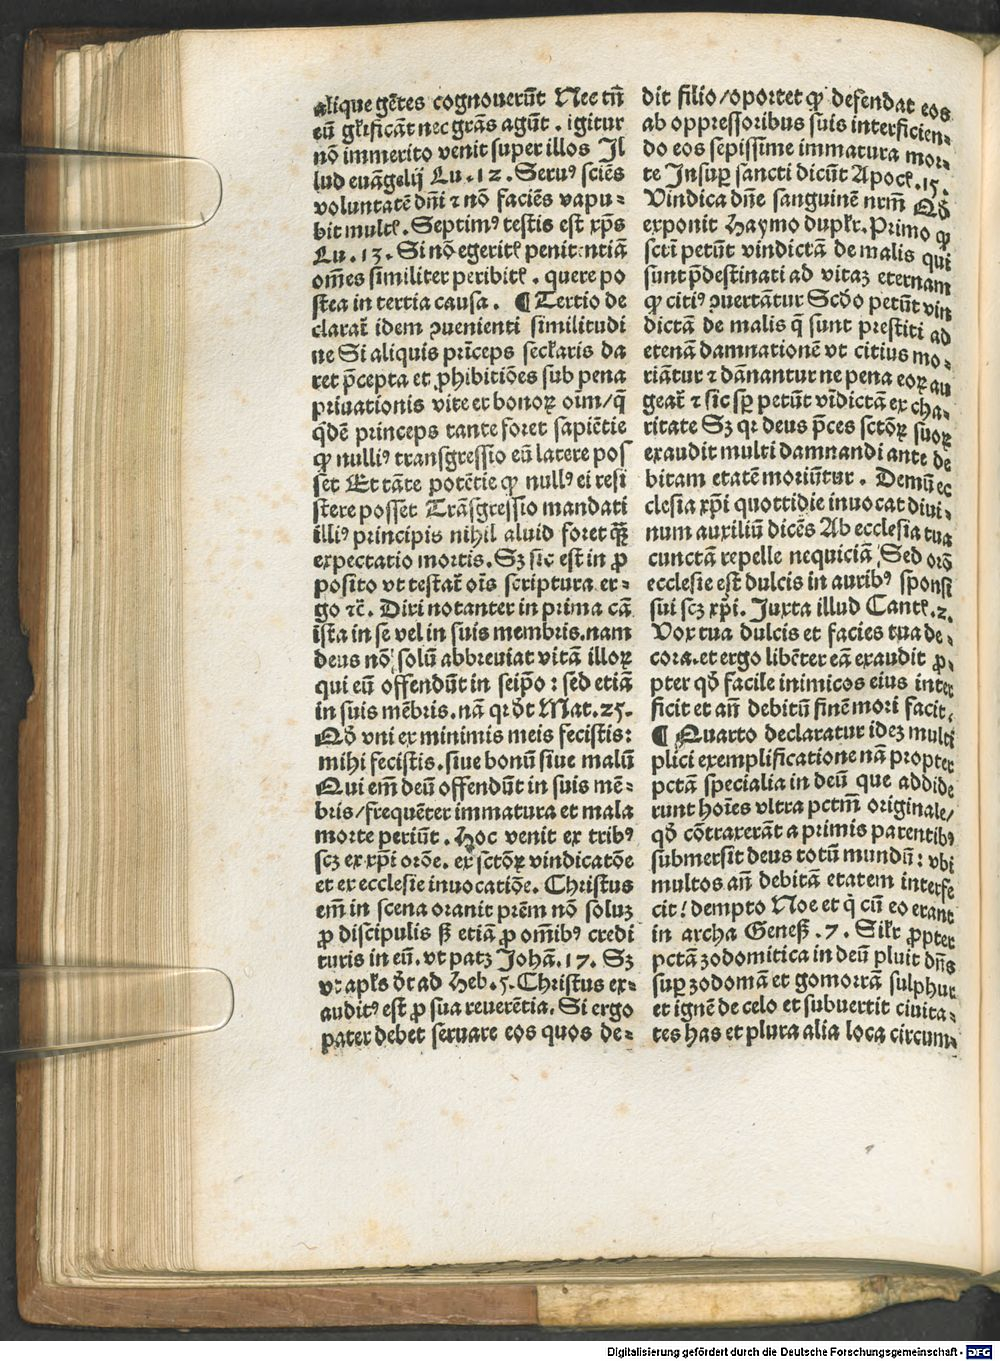 alique gētes cognouerūt Nec tn̄
eū gl̄ificāt nec grās agūt . igitur
nō immerito venit super illos Il
lud euāgelij Lu . 12 . Seruꝰ sciēs
voluntatē dn̄i ⁊ nō faciēs vapu⸗
bit multꝭ . Septimꝰ testis est xp̄s
Lu . 13 . Si nō egeritꝭ penitentiā
om̄es similiter peribitꝭ . quere po
stea in tertia causa . ¶ Tertio de
clarat̄ idem ꝯuenienti similitudi
ne Si aliquis prīceps secĺaris da
ret p̄cepta et ꝓhibitiōes sub pena
priuationis vite et bonoꝝ oīm/q̄
q̇dē princeps tante foret sapiētie
ꝙ nulliꝰ transgressio eū latere pos
set Et tāte potētie ꝙ nullꝰ ei resi
stere posset Trāsgressio mandati
illiꝰ principis nihil aluid foret q̄ꝫ
expectatio mortis . Sꝫ sic est in ꝓ
posito vt testat̄ oīs scriptura er⸗
go ⁊c̄ . Dixi notanter in prima cā
ista in se vel in suis membris . nam
deus nō solū abbreuiat vitā illoꝝ
qui eū offendūt in seip̄o : sed etiā
in suis mēbris . nā qr dr̄t Mat . 25 .
Qd̄ vni ex minimis meis fecistis :
mihi fecistis . siue bonū siue malū
Qui em̄ deū offendūt in suis mē⸗
bris/frequēter immatura et mala
morte periūt . Hoc venit ex tribꝰ
scꝫ ex xp̄i orōe . ex sctōꝝ vindicatōe
et ex ecclesie inuocatiōe . Christus
em̄ in scena orauit prēm nō soluꝫ
ꝓ discipulis sꝫ etiā ꝓ om̄ibꝰ credi
turis in eū . vt patꝫ Johā . 17 . Sꝫ
vt apl̄s dt̄ ad Heb . 5 . Christus ex⸗
auditꝰ est ꝓ sua reuerētia . Si ergo
pater debet seruare eos quos de⸗
dit filio/oportet ꝙ defendat eos
ab oppressoribus suis interficien⸗
do eos sepissime immatura mor⸗
te Insuꝑ sancti dicūt Apocꝭ . 15 .
Vindica dn̄e sanguinē nrm̄ Qd̄
exponit Haymo dupĺr . Primo ꝙ
scti petūt vindictā de malis qui
sunt p̄destinati ad vitaꝫ eternam
ꝙ citiꝰ ꝯuertātur Scd̄o petūt vin
dictā de malis q̄ sunt prestiti ad
etenā damnationē vt citius mo⸗
riātur ⁊ dānantur ne pena eoꝝ au
geat̄ ⁊ sic sꝑ petūt vīdictā ex cha⸗
ritate Sꝫ qr deus p̄ces sctōꝝ suoꝝ
exaudit multi damnandi ante de
bitam etatē moriūtur . Demū ec
clesia xp̄i quottidie inuocat diui⸗
num auxiliū dicēs Ab ecclesia tua
cunctā repelle nequiciā Sed orō
ecclesie est dulcis in auribꝰ sponsi
sui scꝫ xp̄i . Juxta illud Cantꝭ . 2 .
Vox tua dulcis et facies tua de⸗
cora . et ergo libēter eā exaudit ꝓ⸗
pter qd̄ facile inimicos eius inter
ficit et an̄ debitū finē mori facit .
¶ Quarto declaratur ideꝫ multi
plici exemplificatione nā propter
pctā specialia in deū que addide
runt hoīes vltra pctm̄ originale/
qd̄ cōtraxerāt a primis parentibꝰ
submersit deus totū mundū : vbi
multos an̄ debitā etatem interfe
cit ! dempto Noe et q̇ cū eo erant
in archa Geneẜ . 7 . Sil̄r ꝓpter
pctā zodomitica in deū pluit dn̄s
suꝑ zodomā et gomorrā sulphur
et ignē de celo et subuertit ciuita⸗
tes has et plura alia loca circum⸗
Digitalisierung gefördert durch die Deutsche Forschungsgemeinschaft - DFG